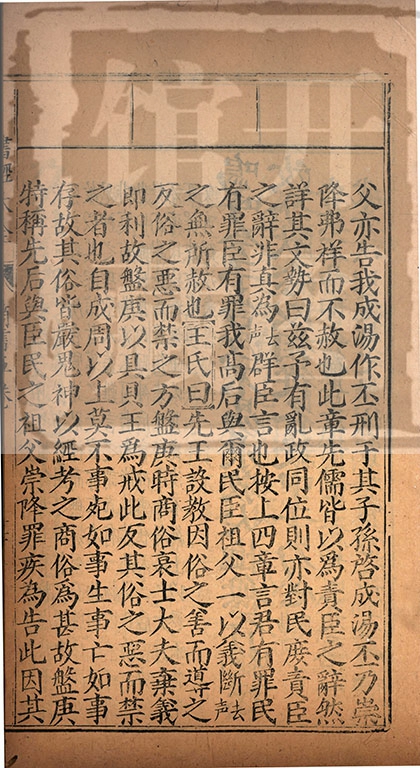 父亦告我成湯作丕刑于其子孫啓成湯丕乃崇
降弗祥而不赦也此章先儒皆以為責臣之辭然
詳其文勢曰兹予有亂政同位則亦對民庶責臣
之辭非真為去聲群臣言也按上四章言君有罪民
有罪臣有罪我高后與爾民臣祖父一以義斷去聲
之無所赦也王氏曰先王設教因俗之善而導之
反俗之惡而禁之方盤庚時商俗衰士大夫棄義
即利故盤庚以具貝玉為戒此反其俗之惡而禁
之者也自成周以上莫不事死如事生事亡如事
存故其俗皆嚴鬼神以經考之商俗為甚故盤庚
特稱先后與臣民之祖父崇降罪疾為告此因其